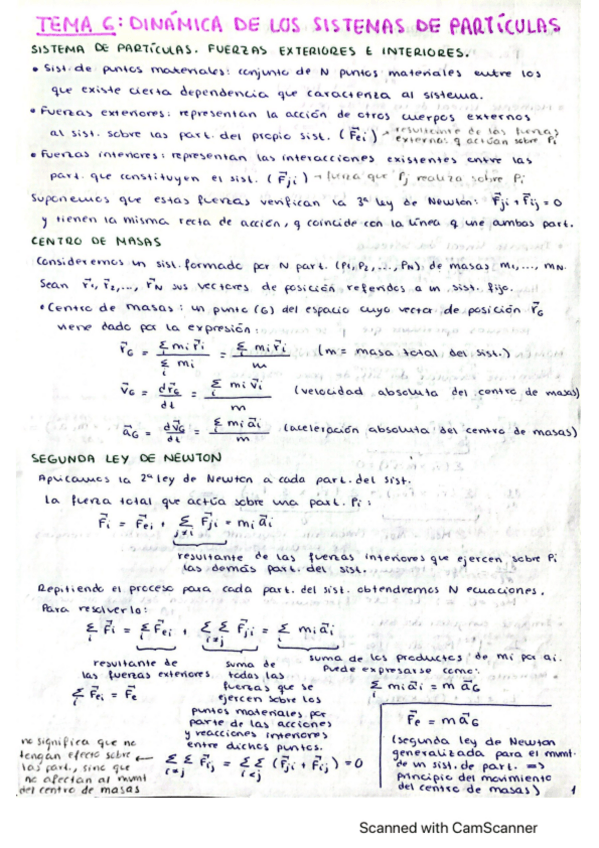 TEMA 6: DINÁMICA DE LOS SISTEMAS DE PARTÍCULAS
SISTEMA DE PARTÍCULAS. FUERZAS EXTERIORES E INTERIORES.
• Sist. de puntos materiales: conjunto de N puntos materiales entre los
que existe cierta dependencia que caracteriza al sistema.
• Fuerzas exteriores: representan la acción de otros cuerpos externos
al sist. sobre las part. del propio sist. (F⃗ei) → resultante de las fuerzas
externas q actúan sobre Pi
• Fuerzas interiores: representan las interacciones existentes entre las
part. que constituyen el sist. (F⃗ji) → fuerza que Pj realiza sobre Pi
Suponemos que estas fuerzas verifican la 3ª ley de Newton: F⃗ji + F⃗ij = 0
y tienen la misma recta de acción, q coincide con la línea q une ambas part.
CENTRO DE MASAS
Consideremos un sist. formado por N part. (P1, P2, ..., PN) de masas m1, ..., mN.
Sean r⃗1, r⃗2, ..., r⃗N sus vectores de posición referidos a un sist. fijo.
• Centro de masas: un punto (G) del espacio cuyo vector de posición r⃗G
viene dado por la expresión:
r⃗G = Σi mi r⃗i / Σi mi = Σi mi r⃗i / m (m = masa total del sist.)
v⃗G = dr⃗G / dt = Σi mi v⃗i / m (velocidad absoluta del centro de masas)
a⃗G = dv⃗G / dt = Σi mi a⃗i / m (aceleración absoluta del centro de masas)
SEGUNDA LEY DE NEWTON
Aplicamos la 2ª ley de Newton a cada part. del sist.
La fuerza total que actúa sobre una part. Pi:
F⃗i = F⃗ei + Σj≠i F⃗ji = mi a⃗i
resultante de las fuerzas interiores que ejercen sobre Pi
las demás part. del sist.
Repitiendo el proceso para cada part. del sist. obtendremos N ecuaciones.
Para resolverlo:
Σi F⃗i = Σi F⃗ei + Σ Σi≠j F⃗ji = Σi mi a⃗i
resultante de
las fuerzas exteriores
Σi F⃗ei = F⃗e
suma de
todas las
fuerzas que se
ejercen sobre los
puntos materiales por
parte de las acciones
y reacciones interiores
entre dichos puntos.
suma de los productos de mi por ai.
Puede expresarse como:
Σi mi a⃗i = m a⃗G
F⃗e = m a⃗G
(segunda ley de Newton
generalizada para el mvmt.
de un sist. de part. ⇒
principio del movimiento
del centro de masas)
no significa que no
tengan efecto sobre
las part., sino que
no afectan al mvmt
del centro de masas
← Σ Σi≠j F⃗ij = Σ Σi<j (F⃗ji + F⃗ij) = 0
1
Scanned with CamScanner